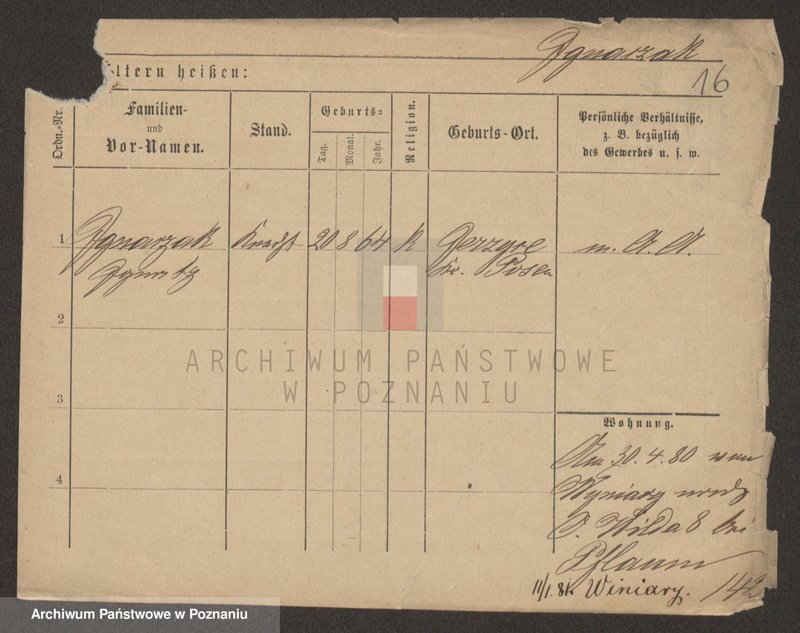 Ignarzak
16
ltern heißen:
Ordn.-Nr.
Familien-
und
Vor-Namen.
Stand.
Geburts-
Tag.
Monat.
Jahr.
Religion.
Geburts-Ort.
Persönliche Verhältnisse,
z. B. bezüglich
des Gewerbes u. s. w.
1
Ignarzak
Knecht
20 8 64
K
Jerzyce
m. A. A.
Ignatz
Kr. Posen
2
ARCHIWUM PAŃSTWOWE
W POZNANIU
3
Wohnung.
Am 30.4.80 von
Wyniary nach
O. Wilda 8 bei
4
Pflaum
11/1.81. Winiary. 142
Archiwum Państwowe w Poznaniu